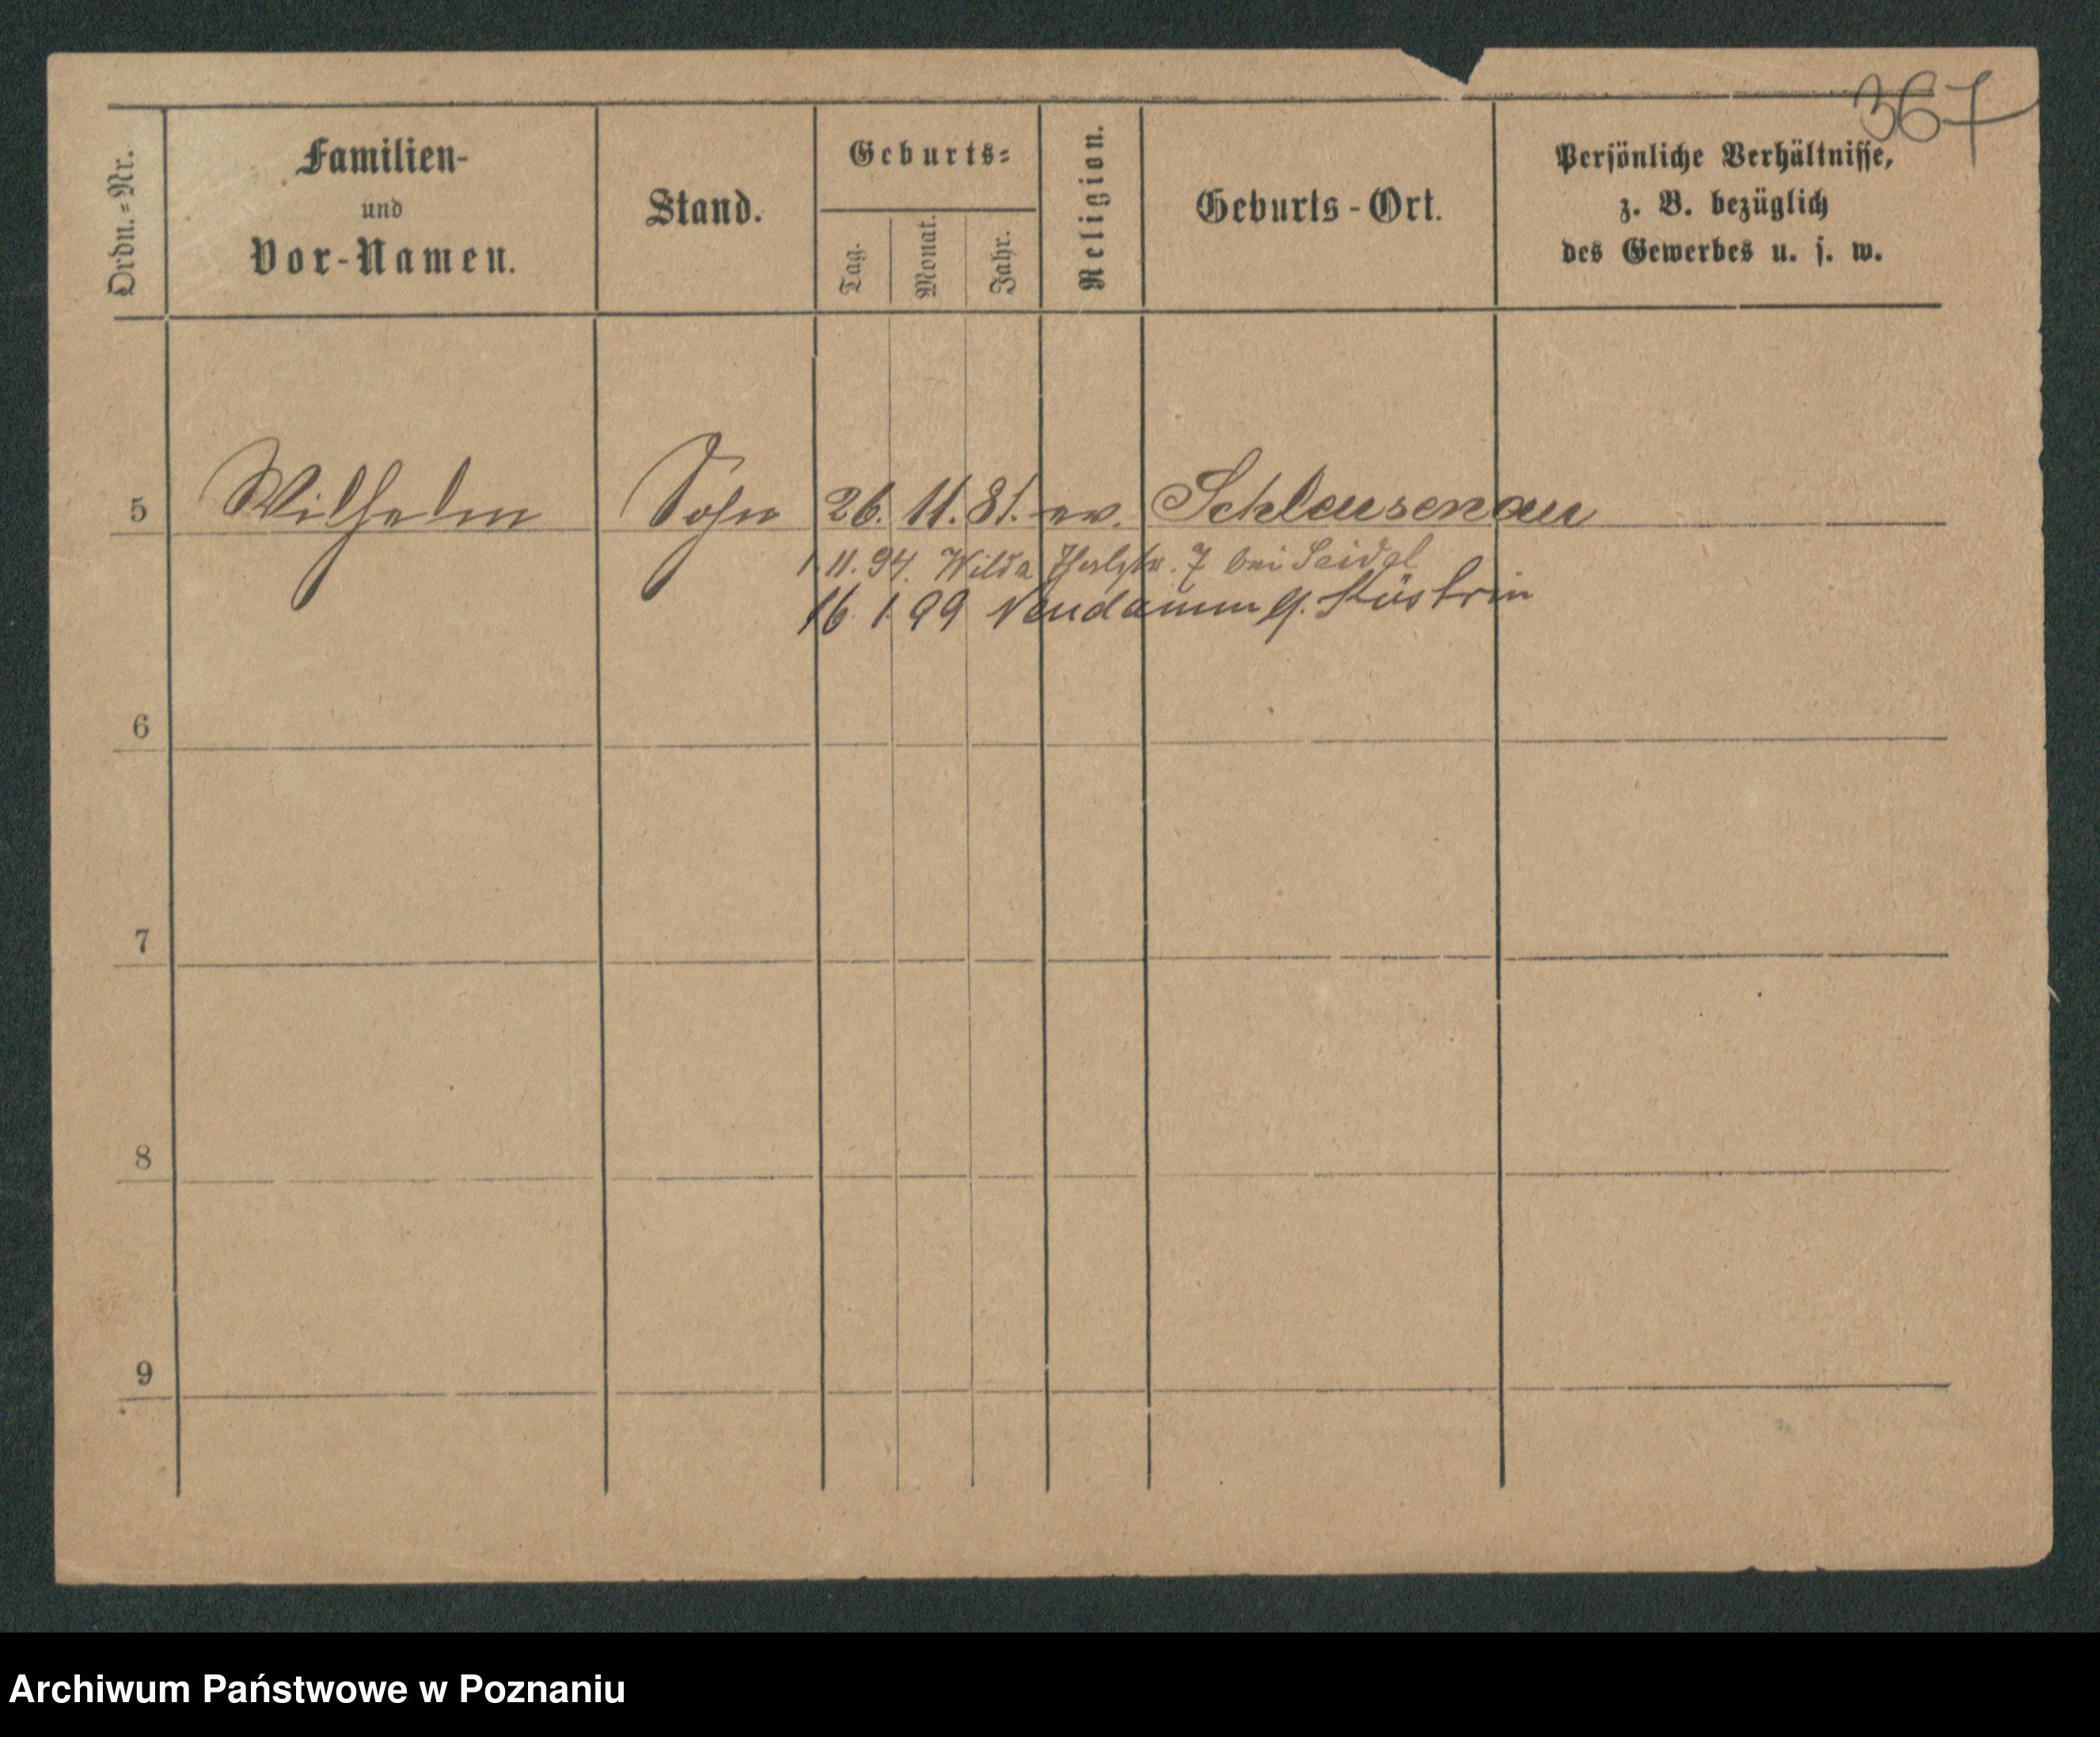 367
Ordn.-Nr.
Familien-
und
Vor-Namen.
Stand.
Geburts-
Tag.
Monat.
Jahr.
Religion.
Geburts-Ort.
Persönliche Verhältnisse,
z. B. bezüglich
des Gewerbes u. s. w.
5 Wilhelm Sohn 26. 11. 81. ev. Schleusenau
1. 11. 94. Wilda 7 bei Seidel
16. 1. 99 Neudamm Küstrin
6
7
8
9
Archiwum Państwowe w Poznaniu